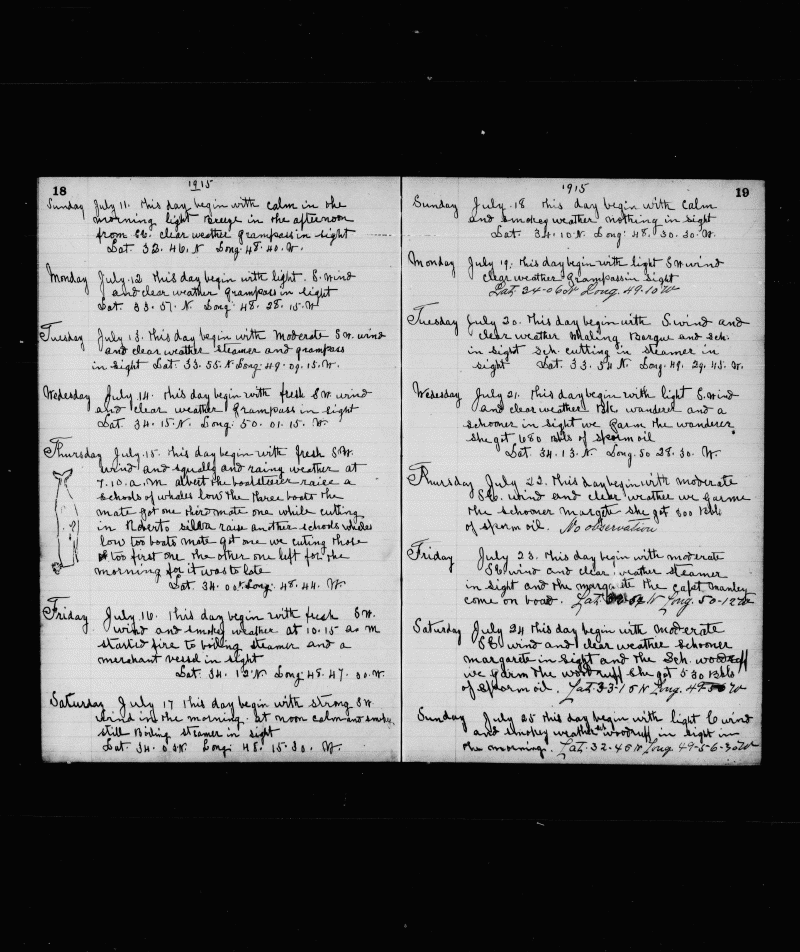 18
1915
Sunday July 11. this day begin with calm in the
morning light Breeze in the afternoon
from SE. clear weather grampass in sight
Lat. 32. 46. N Long: 48. 40. W.
Monday July 12 this day begin with light. S. wind
and clear weather grampass in sight
Lat. 33. 57. N. Long: 48. 28. 15. W
Tuesday July 13. this day begin with Moderate SW. wind
and clear weather steamer and grampass
in sight Lat. 33. 55. N. Long: 49. 09. 15. W.
Wedesday July 14. this day begin with fresh SW. wind
and clear weather grampass in sight
Lat. 34. 15. N. Long: 50. 01. 15. W.
Thursday July. 15. this day begin with fresh SW.
wind and squally and rainy weather at
7.10. a. m albert the boatsteerer raise a
schools of whales low the three boats the
mate got one third mate one while cutting
in Roberto silva raise another schools whales
low too boats mate got one we cuting those
too first one the other one left for the
morning for it was to late
Lat. 34. 00 Long: 48. 44. W.
Friday July 16. this day begin with fresh SW.
wind and smokey weather at 10.15 a. m
started fire to boiling steamer and a
merchant vessel in sight
Lat. 34. 12 N Long: 48. 47. 00. W.
Saturday July 17 this day begin with strong SW.
wind in the morning. at noon calm and smokey
still Boiling steamer in sight
Lat. 34. 03 N. Long: 48. 15. 30. W.
1915
19
Sunday July. 18 this day begin with calm
and smokey weather nothing in sight
Lat. 34. 10. N. Long: 48. 30. 30. W.
Monday July 19. this day begin with light SW wind
clear weather grampass in sight
Lat. 34-06 N Long. 49-10 W
Tuesday July 20. this day begin with S. wind and
clear weather Whaling Barque and Sch.
in sight Sch. cutting in steamer in
sight Lat. 33. 54 N. Long. 49. 29. 45. W.
Wesesday July 21. this day begin with light S. wind
and clear weather Bk wanderer and a
schooner in sight we garm the wanderer
she got 680 bbls of sperm oil
Lat. 34. 13. N. Long. 50 28. 30. W.
Thursday July 22. this day begin with moderate
SE. wind and clear weather we garme
the schooner margete she got 300 bbls
of sperm oil. No observation
Friday July 23. this day begin with moderate
SE wind and clear weather steamer
in sight and the margarete the Capt. Manley
come on boad. Lat. N Long. 50-12 W
Saturday July 24 this day begin with moderate
SE wind and clear weather schooner
margarete in sight and the Sch. woodruff
we garm the woodruff she got 530 Bbls
of sperm oil. Lat. 33-15 N Long. W
Sunday July 25 this day begin with light E wind
and smokey weather woodruff in sight in
the morning. Lat. 32-48 N Long. 49-56-30 W